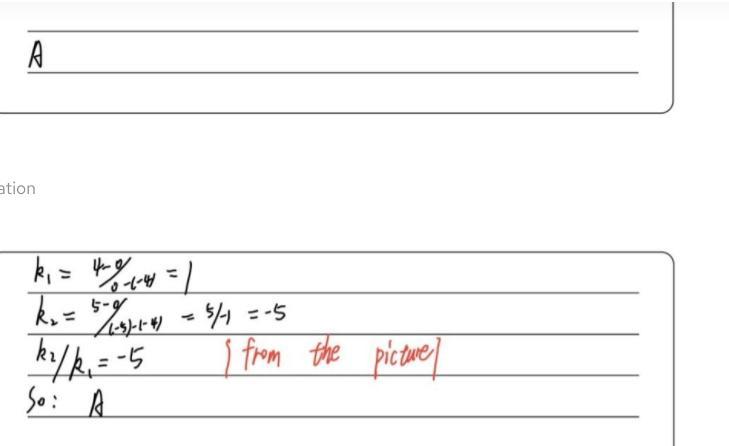 A
ation
k₁ = 4-0/0-(-4) = 1
k₂ = 5-0/(-5)-(-4) = 5/-1 = -5
k₂/k₁ = -5 [from the picture]
So: A